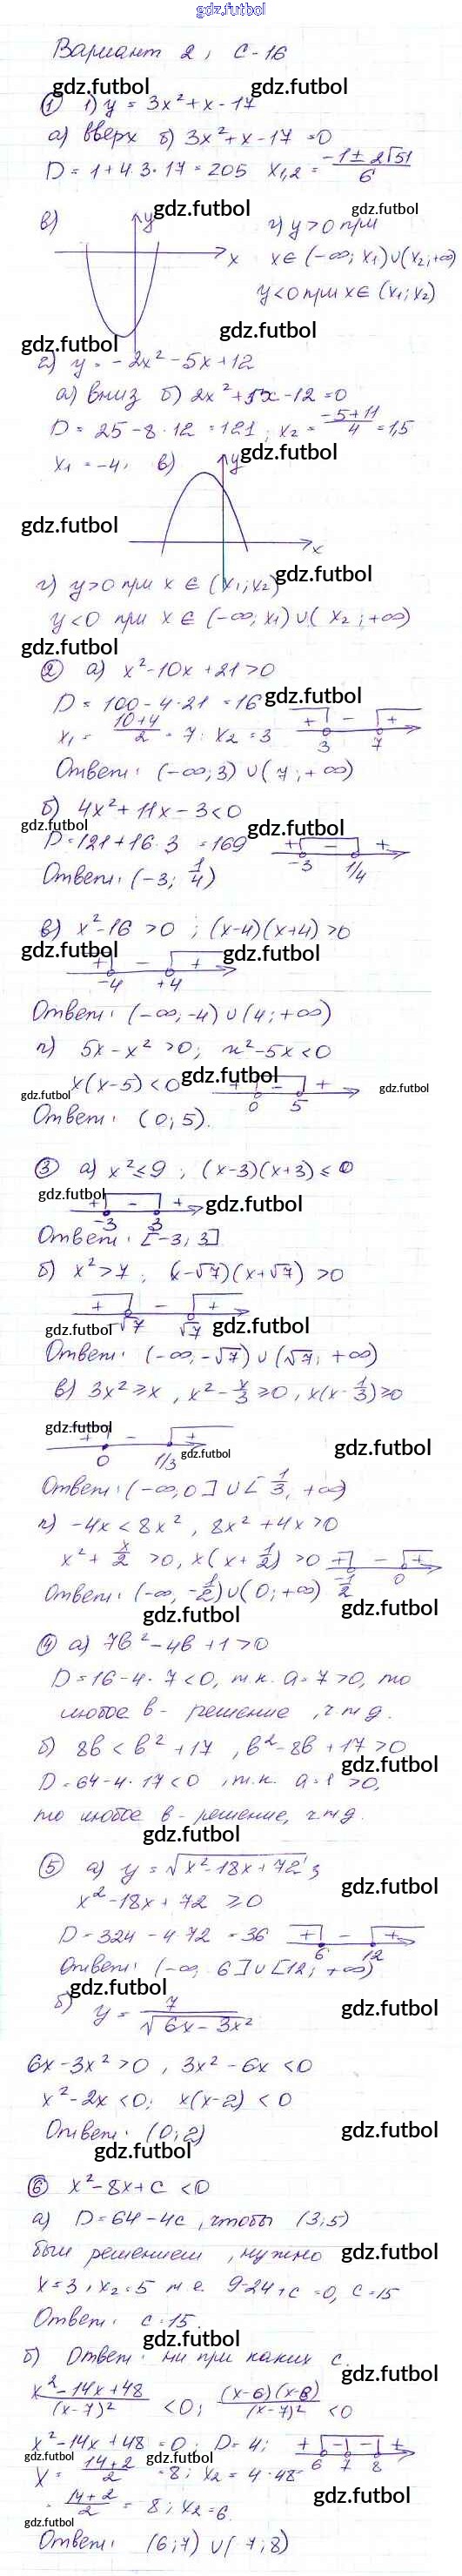 gdz.futbol
Вариант 2, С-16
gdz.futbol gdz.futbol
① 1) y = 3x² + x - 17
а) вверх б) 3x² + x - 17 = 0
D = 1 + 4·3·17 = 205 x₁,₂ = (-1 ± 2√51)/6
gdz.futbol gdz.futbol
в) y x г) y > 0 при
x ∈ (-∞; x₁) ∪ (x₂; +∞)
y < 0 при x ∈ (x₁; x₂)
gdz.futbol gdz.futbol
2) y = -2x² - 5x + 12
а) вниз б) 2x² + 5x - 12 = 0
D = 25 - 8·12 = 121; x₂ = (-5 + 11)/4 = 1,5
x₁ = -4, в) y gdz.futbol
gdz.futbol
x
г) y > 0 при x ∈ (x₁; x₂) gdz.futbol
y < 0 при x ∈ (-∞; x₁) ∪ (x₂; +∞)
gdz.futbol
② а) x² - 10x + 21 > 0
D = 100 - 4·21 = 16 gdz.futbol
x₁ = (10 + 4)/2 = 7; x₂ = 3 + - + 3 7
Ответ: (-∞; 3) ∪ (7; +∞)
б) 4x² + 11x - 3 < 0
gdz.futbol gdz.futbol
D = 121 + 16·3 = 169 + - + -3 1/4
Ответ: (-3; 1/4)
в) x² - 16 > 0; (x-4)(x+4) > 0
gdz.futbol gdz.futbol
+ - + -4 +4
Ответ: (-∞; -4) ∪ (4; +∞)
г) 5x - x² > 0; x² - 5x < 0
x(x-5) < 0 gdz.futbol - + 0 5
gdz.futbol gdz.futbol
Ответ: (0; 5).
③ а) x² ≤ 9, (x-3)(x+3) ≤ 0
gdz.futbol
+ - + -3 3 gdz.futbol
Ответ: [-3; 3]
б) x² > 7; (x-√7)(x+√7) > 0
+ - + -√7 √7
gdz.futbol gdz.futbol
Ответ: (-∞, -√7) ∪ (√7; +∞)
в) 3x² ≥ x, x² - x/3 ≥ 0, x(x - 1/3) ≥ 0
gdz.futbol
+ - + 0 1/3 gdz.futbol gdz.futbol
Ответ: (-∞, 0] ∪ [1/3, +∞)
г) -4x < 8x², 8x² + 4x > 0
x² + x/2 > 0, x(x + 1/2) > 0 + - + -1/2 0
Ответ: (-∞, -1/2) ∪ (0; +∞)
gdz.futbol gdz.futbol
④ а) 7b² - 4b + 1 > 0
D = 16 - 4·7 < 0, т.к. a = 7 > 0, то
любое b - решение, ч.т.д.
б) 8b < b² + 17, b² - 8b + 17 > 0
gdz.futbol
D = 64 - 4·17 < 0, т.к. a = 1 > 0,
то любое b - решение, ч.т.д.
gdz.futbol
⑤ а) y = √(x² - 18x + 72);
gdz.futbol
x² - 18x + 72 ≥ 0
D = 324 - 4·72 = 36 + - + 6 12
Ответ: (-∞, 6] ∪ [12; +∞)
gdz.futbol
б) y = 7/√(6x - 3x²) gdz.futbol
6x - 3x² > 0, 3x² - 6x < 0
x² - 2x < 0; x(x-2) < 0
Ответ: (0; 2) gdz.futbol
gdz.futbol
⑥ x² - 8x + c < 0
а) D = 64 - 4c, чтобы (3; 5)
были решением, нужно gdz.futbol
x = 3, x₂ = 5 т.е. 9 - 24 + c = 0, c = 15
Ответ: c = 15.
gdz.futbol
б) Ответ: ни при каких c.
gdz.futbol
(x² - 14x + 48)/(x-7)² < 0; (x-6)(x-8)/(x-7)² < 0
x² - 14x + 48 = 0; D = 4; + - - + 6 7 8
gdz.futbol gdz.futbol
x = (14 + 2)/2 = 8; x₂ = 4·48
gdz.futbol
= (14 + 2)/2 = 8; x₂ = 6
gdz.futbol
Ответ: (6; 7) ∪ (7; 8)